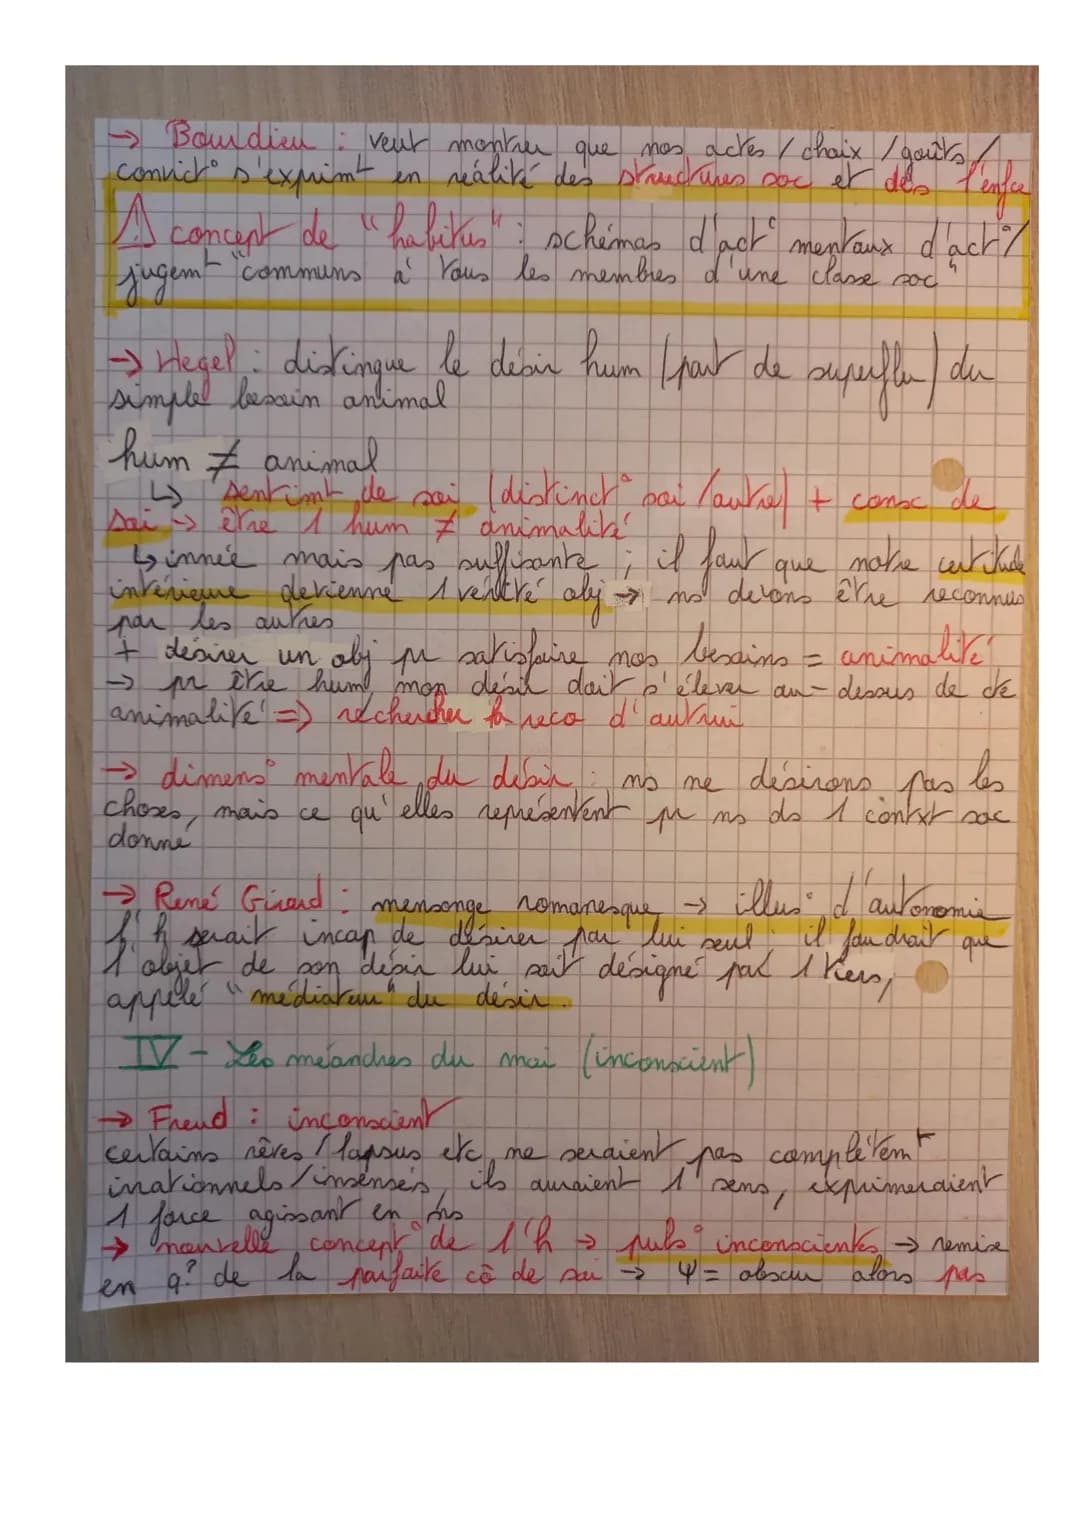 → Bourdieu : veut montrer que nos actes / choix / goûts /
convict° s'exprimt en réalité des structures soc et dès l'enfce
⚠ concept de "habitus" : schémas d'act° mentaux d'act°/
jugemt "communs à tous les membres d'une classe soc"
→ Hegel : distingue le désir hum (part de superflu) du
simple besoin animal
hum ≠ animal
↳ sentimt de soi (distinct° soi/autre) + consc de
soi → être 1 hum ≠ animalité
↳ innée mais pas suffisante ; il faut que notre certitude
intérieure devienne 1 vérité obj → ns devons être reconnus
par les autres
+ désirer un obj pr satisfaire nos besoins = animalité
→ pr être hum, mon désir doit s'élever au-dessus de cte
animalité => rechercher la reco d'autrui
→ dimens° mentale du désir : ns ne désirons pas les
choses, mais ce qu'elles représentent pr ns ds 1 contxt soc
donné
→ René Girard : mensonge romanesque → illus° d'autonomie
l'h serait incap de désirer par lui seul ; il faudrait que
l'objet de son désir lui soit désigné par 1 tiers,
appelé "médiateur" du désir.
IV - Les méandres du moi (inconscient)
→ Freud : inconscient
certains rêves / lapsus etc ne seraient pas complètemt
irrationnels / insensés, ils auraient 1 sens, exprimeraient
1 force agissant en ns
→ nouvelle concept° de l'h → puls° inconscientes → remise
en q? de la parfaite cō de soi → Ψ = obscur alors pas